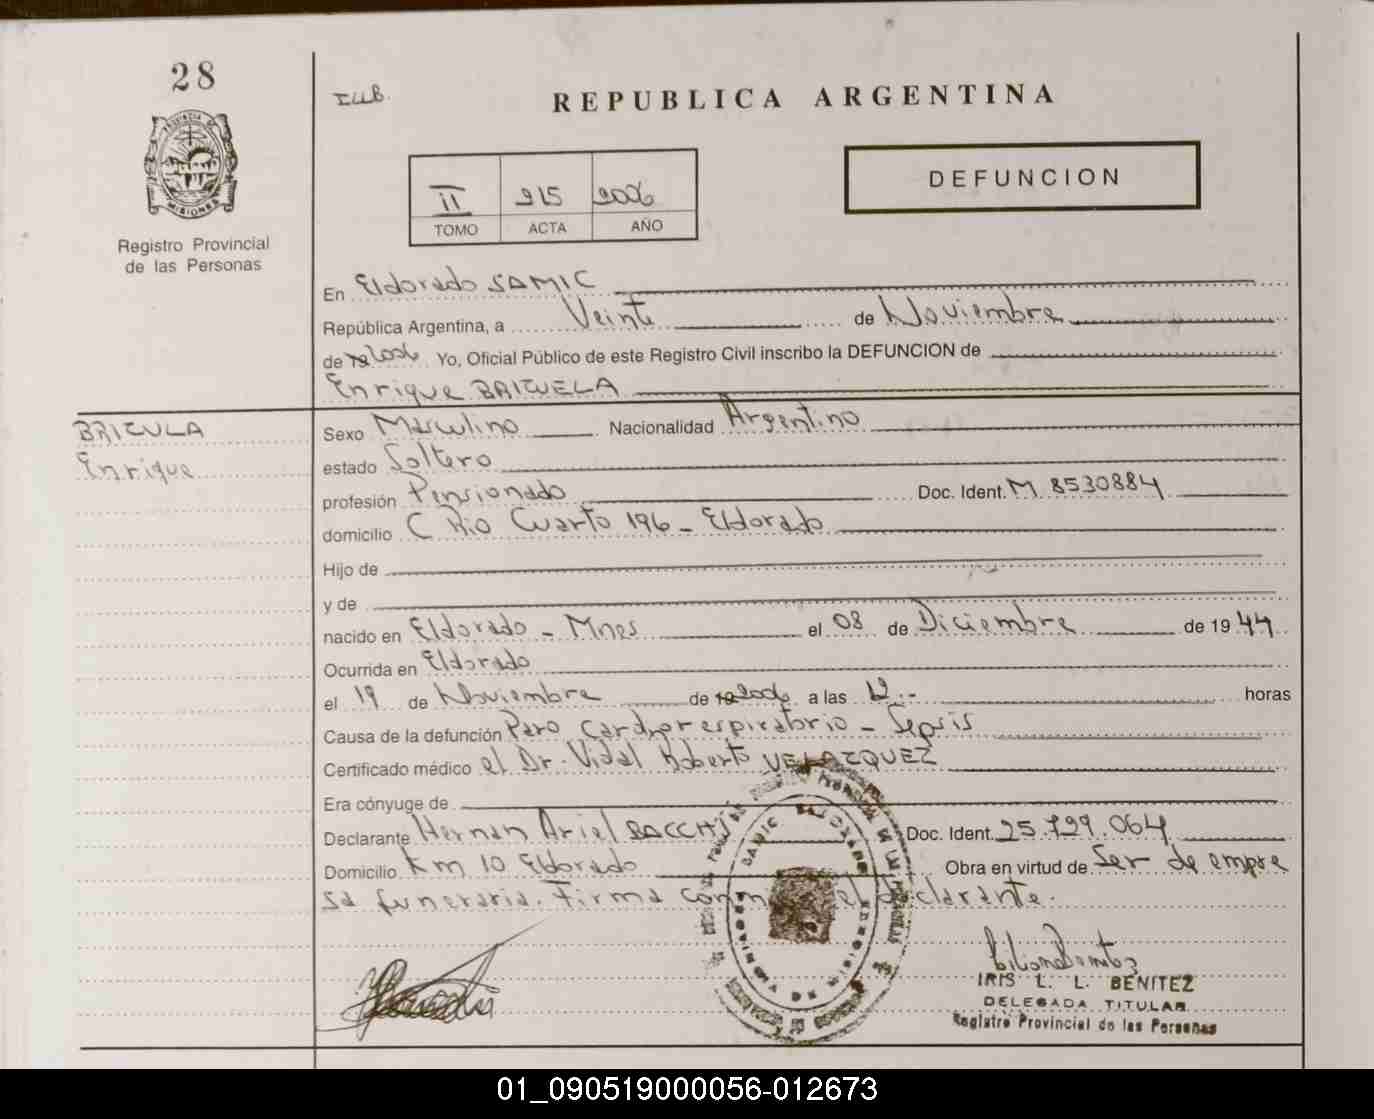 28
PROVINCIA DE
MISIONES
Registro Provincial
de las Personas
REPUBLICA ARGENTINA
DEFUNCION
II 215 2006
TOMO ACTA AÑO
En Eldorado SAMIC
República Argentina, a Veinte de Noviembre
de 2006 Yo, Oficial Público de este Registro Civil inscribo la DEFUNCION de
Enrique BRIZUELA
BRIZULA
Enrique
Sexo Masculino Nacionalidad Argentino
estado Soltero
profesión Pensionado Doc. Ident. M 8530884
domicilio C Rio Cuarto 196 - Eldorado
Hijo de
y de
nacido en Eldorado - Mnes el 08 de Diciembre de 1944
Ocurrida en Eldorado
el 19 de Noviembre de 2006 a las 12.- horas
Causa de la defunción Paro cardiorespiratorio - Sepsis
Certificado médico el Dr. Vidal Roberto VELAZQUEZ
Era cónyuge de
Declarante Hernan Ariel BACCHI Doc. Ident. 25.729.064
Domicilio Km 10 Eldorado Obra en virtud de Ser de empre
sa funeraria. Firma conmigo el declarante.
IRIS L. L. BENITEZ
DELEGADA TITULAR
Registro Provincial de las Personas
01_090519000056-012673